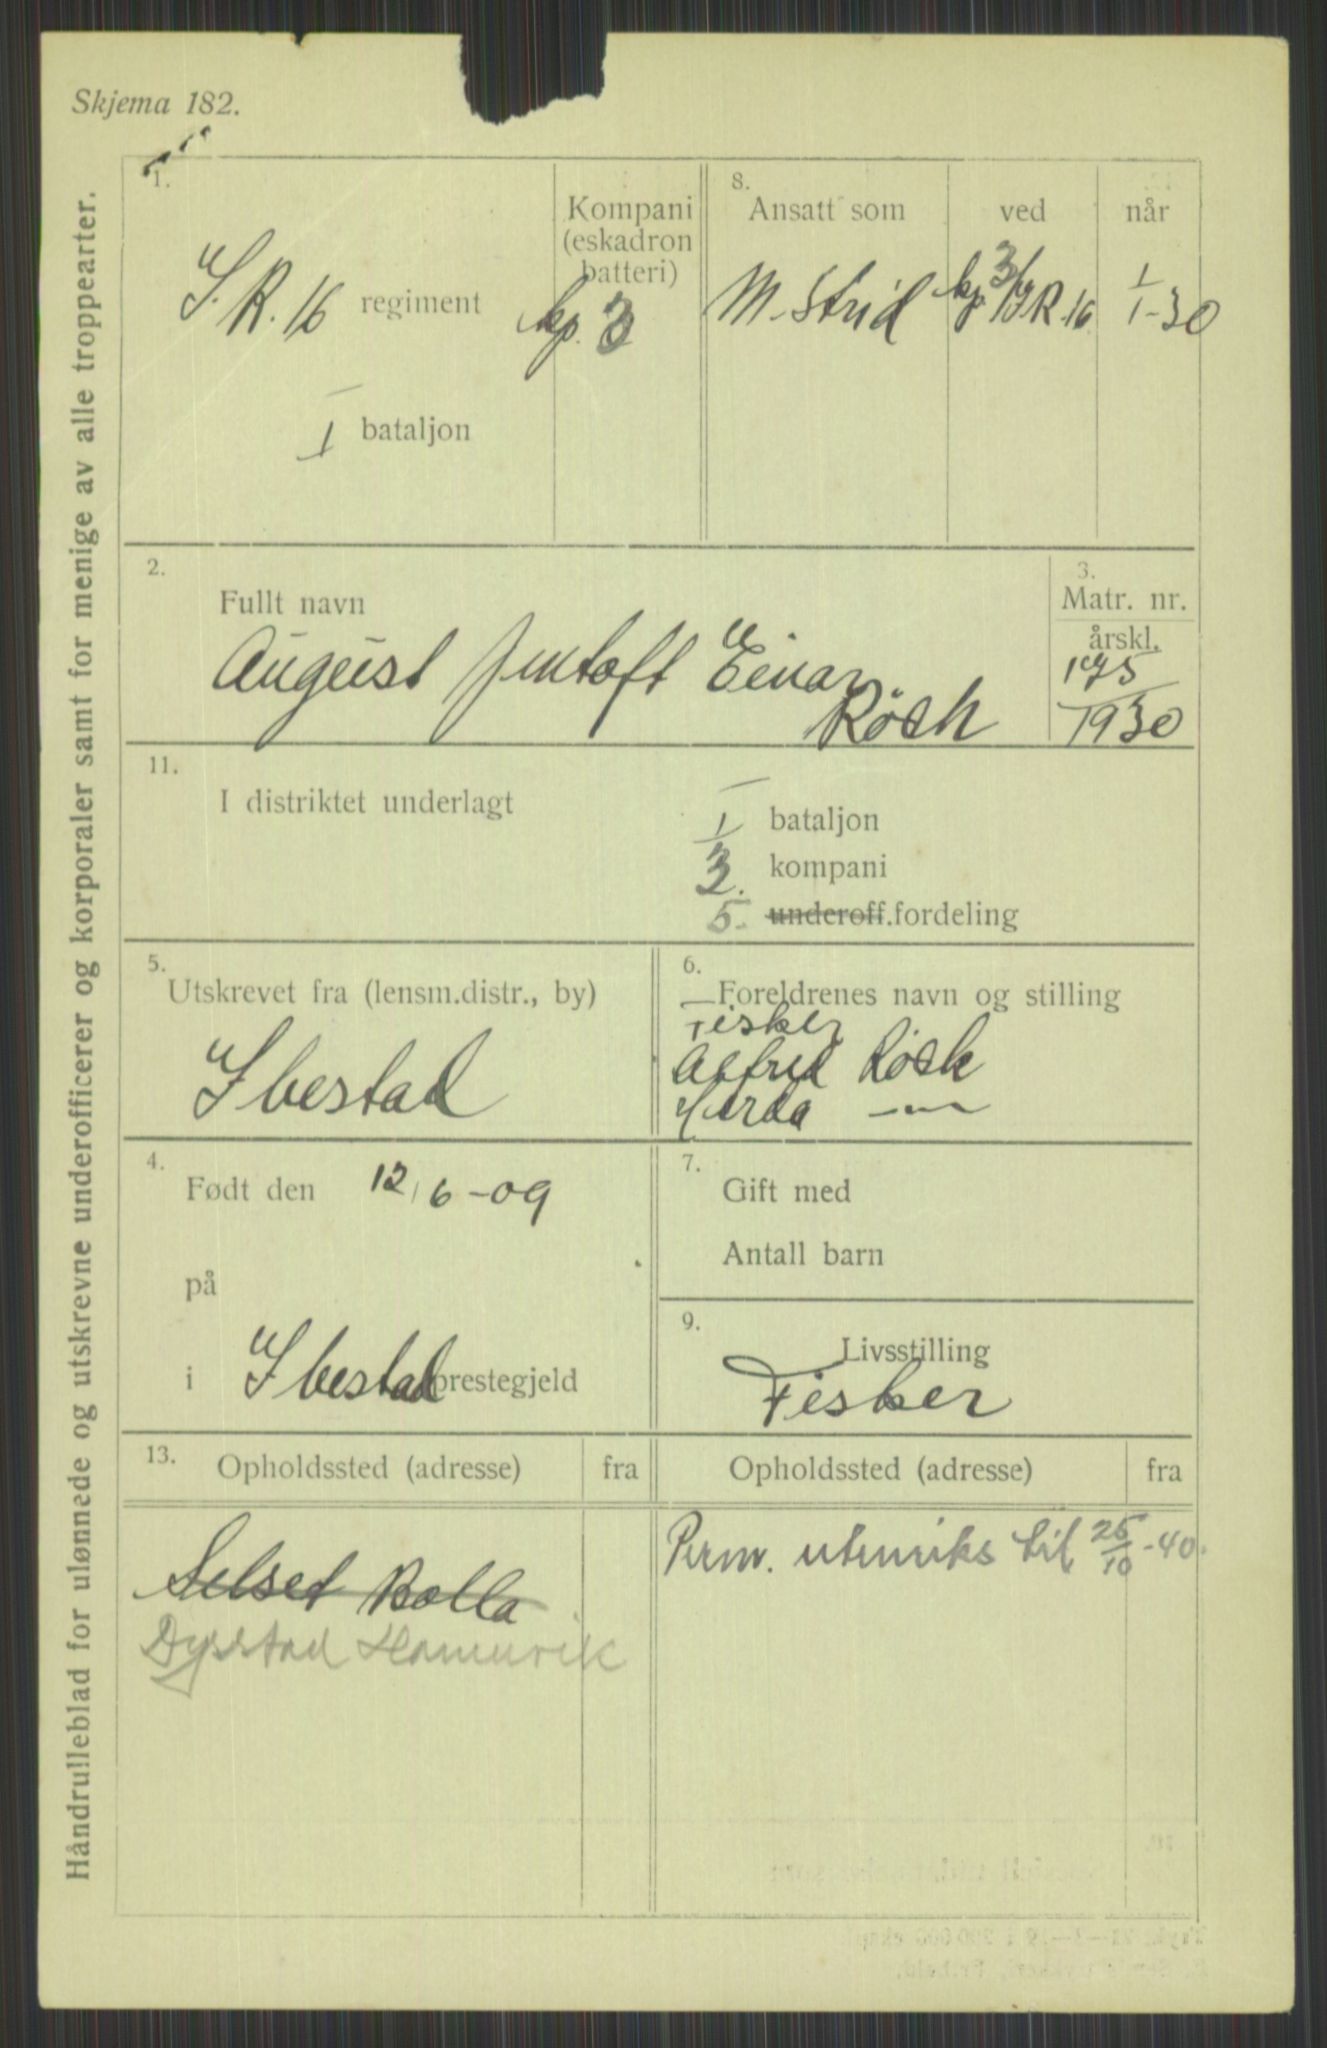 Skjema 182.
Håndrulleblad for ulønnede og utskrevne underofficerer og korporaler samt for menige av alle troppearter.
1.
I.R. 16 regiment
I bataljon
Kompani
(eskadron
batteri)
kp. 3
8.
Ansatt som
M. Strid
ved
kp 3/I.R. 16
når
1/1-30
2.
Fullt navn
August Jentoft Einar
Rösh
3.
Matr. nr.
årskl.
175
1930
11.
I distriktet underlagt
I bataljon
3. kompani
5. underoff.fordeling
5.
Utskrevet fra (lensm.distr., by)
Ibestad
6.
Foreldrenes navn og stilling
Fisker
Alfred Rösh
4.
Født den 12/6-09
på
i Ibestad prestegjeld
7.
Gift med
Antall barn
9.
Livsstilling
Fisker
13.
Opholdssted (adresse) fra
Selset Rolla
Dyrstad Hamnvik
Opholdssted (adresse) fra
Perm. utenriks til 25/10-40.